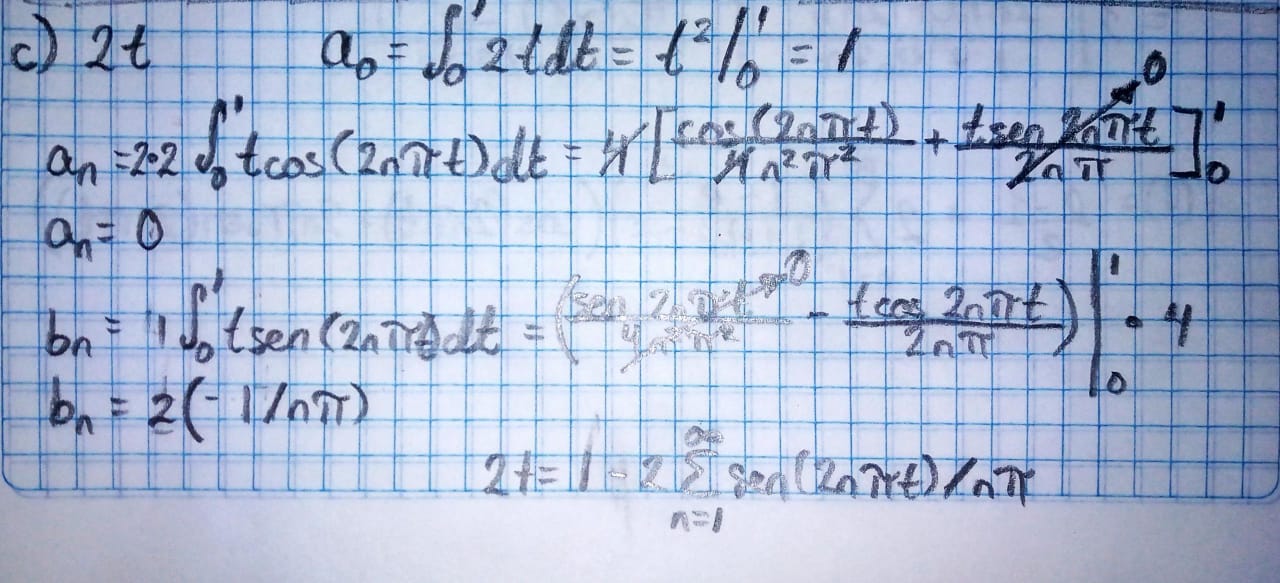 c) 2t a₀ = ∫₀¹ 2tdt = t²/₀¹ = 1
aₙ = 2·2 ∫₀¹ tcos(2nπt)dt = 4[cos(2nπt)/4n²π² + tsen 2nπt/2nπ → 0]₀¹
aₙ = 0
bₙ = 4∫₀¹ tsen(2nπt)dt = (sen 2nπt/4n²π² → 0 - tcos 2nπt/2nπ)|₀¹ · 4
bₙ = 2(-1/nπ)
2t = 1 - 2 ∑ₙ₌₁^∞ sen(2nπt)/nπ